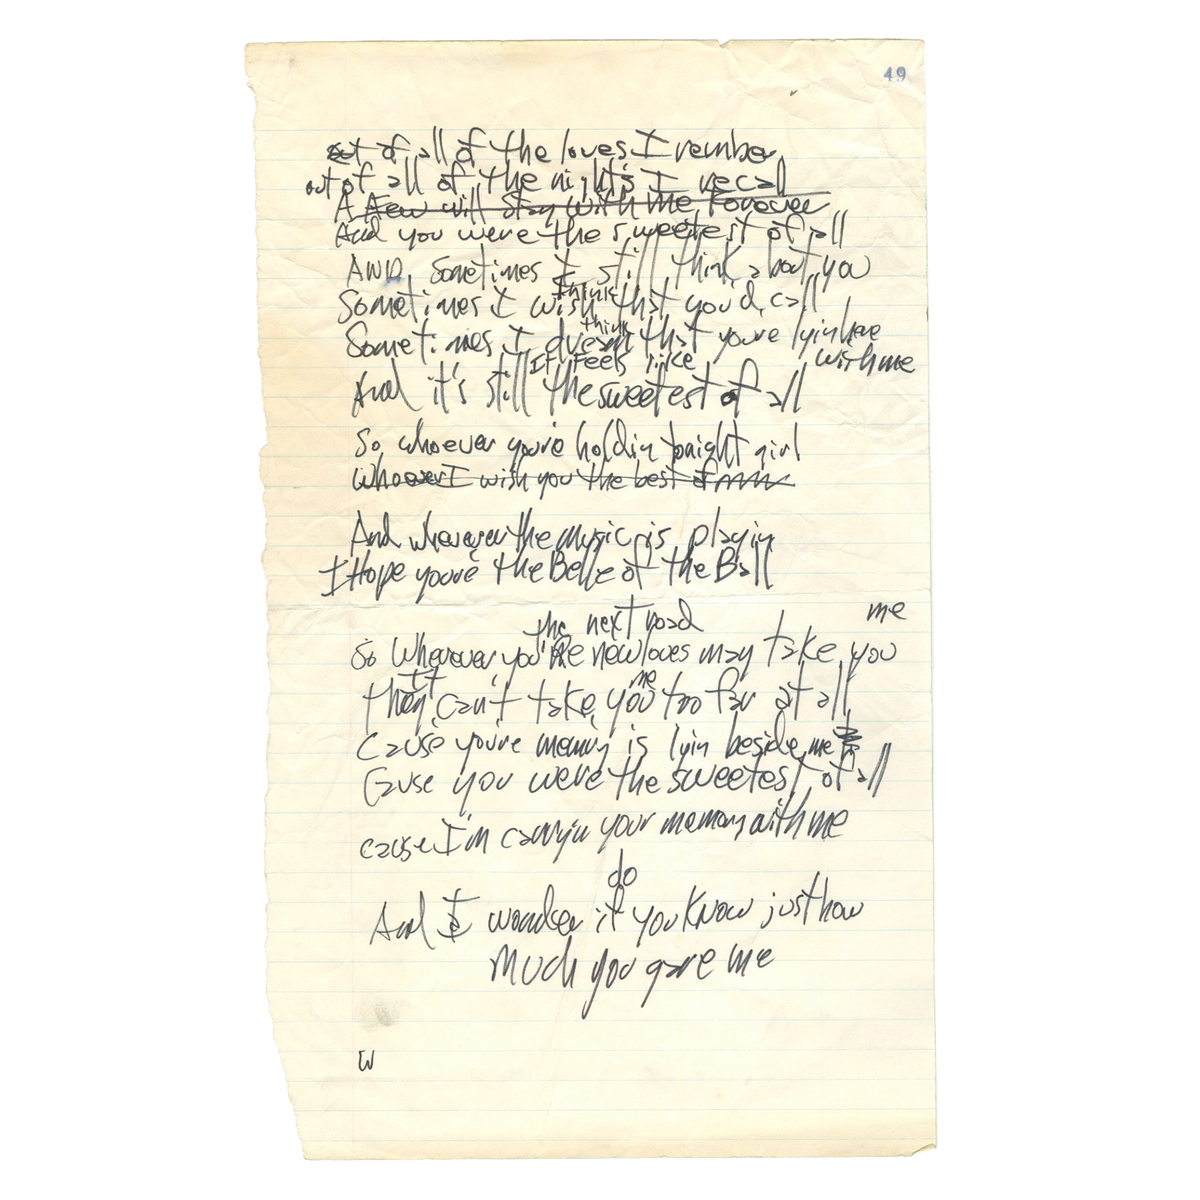 49
out of all of the loves I rember
out of all of the night's I recal
A few will stay with me Forever
And you were the sweetest of all
AND sometimes I still think about you
think
Sometimes I wish that you'd call
think
Sometimes I dream that you're lyin here with me
It Feels like
And it's still the sweetest of all
So whoever you're holdin tonight girl
Whoever I wish you the best of
And wherever the music is playin
I Hope you're the Belle of the Ball
the next road me
So Wherever you're new loves may take you
it me
they can't take you too far at all
Cause you're memry is lyin beside me
Cause you were the sweetest of all
cause I'm carryin your memory with me
do
And I wonder if you know just how
Much you gave me
W